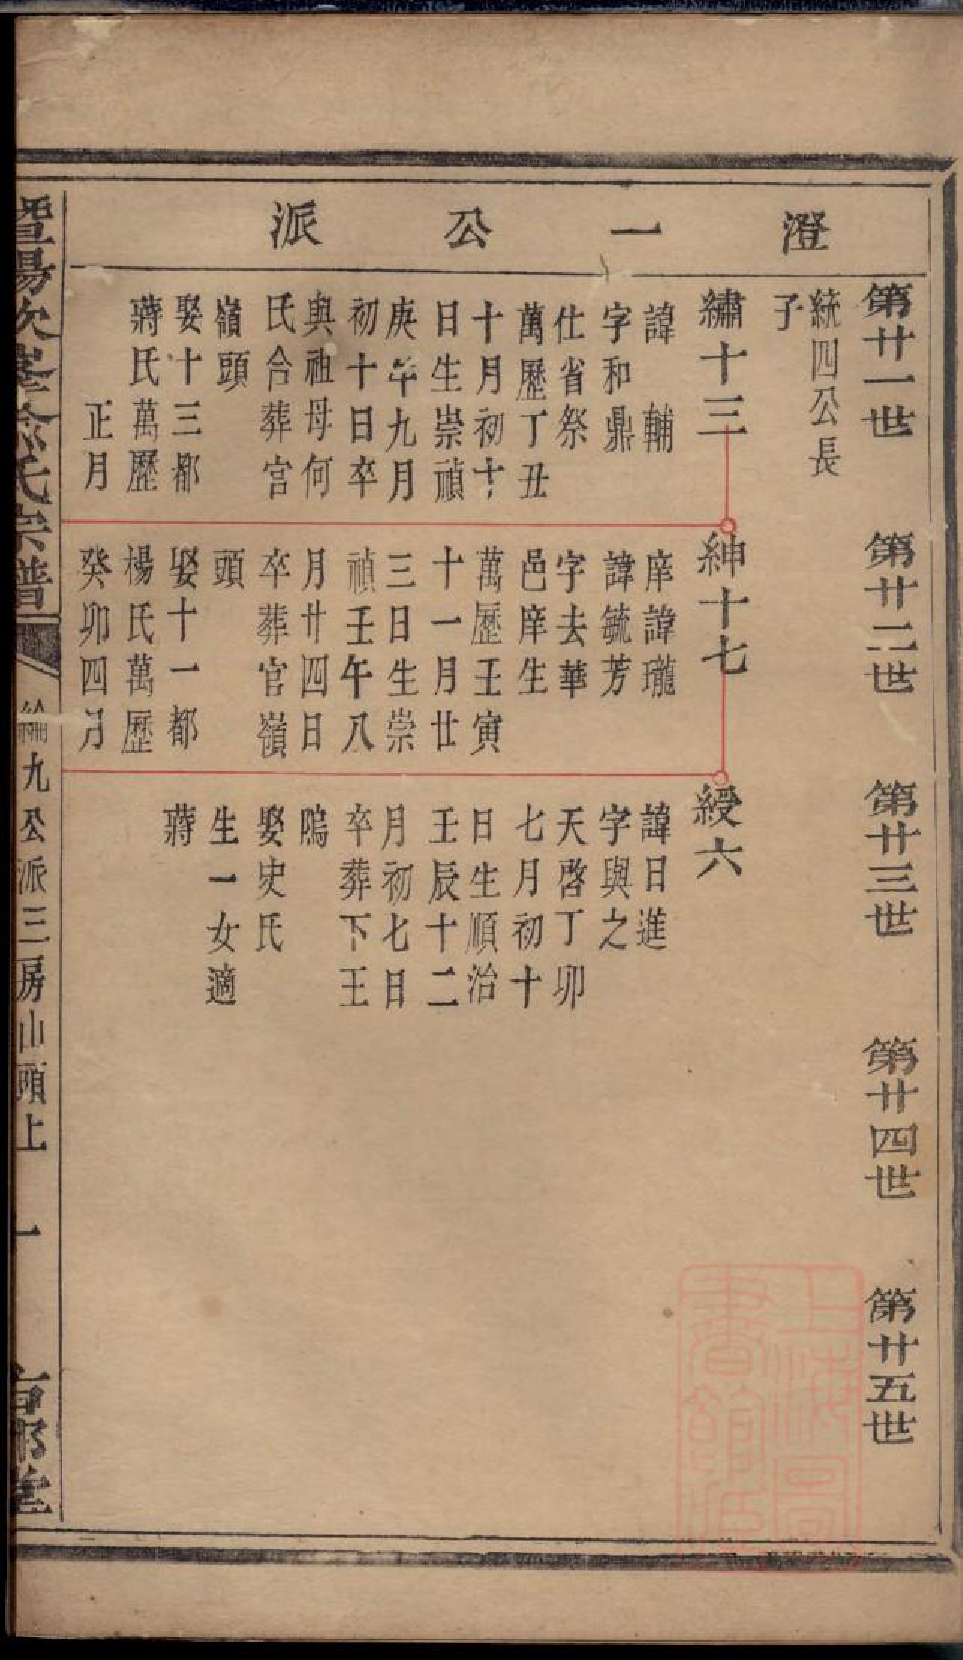 澄一公派
第廿一世
第廿二世
第廿三世
第廿四世
第廿五世
統四公長
子
繡十三
諱輔
字和鼎
仕省祭
萬歷丁丑
十月初十
日生崇禎
庚午九月
初十日卒
與祖母何
氏合葬官
嶺頭
娶十三都
蔣氏萬歷
正月
紳十七
庠諱瓏
諱毓芳
字去華
邑庠生
萬歷壬寅
十一月廿
三日生崇
禎壬午八
月廿四日
卒葬官嶺
頭
娶十一都
楊氏萬歷
癸卯四月
綬六
諱日進
字與之
天啓丁卯
七月初十
日生順治
壬辰十二
月初七日
卒葬下王
塢
娶史氏
生一女適
蔣
暨陽次峯俞氏宗譜
綸九公派三房山頭上
一
上海圖
書館藏